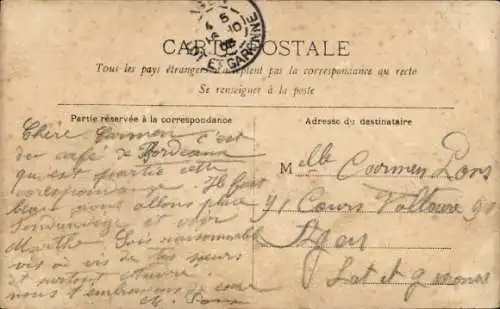 CARTE POSTALE
Tous les pays étrangers n'acceptent pas la correspondance au recto
Se renseigner à la poste
Partie réservée à la correspondance
Adresse du destinataire
LOT ET GARONNE
Chère Carmen c'est
du café de Bordeaux
qui est partie cette
correspondance. Il fait
beau nous allons
et voir
Marthe. Sois raisonnable
vis à vis de tes sœurs
et surtout
nous t'embrassons de cœur
M. Pons
Melle Carmen Pons
91 Cours Voltaire 91
Agen
Lot et Garonne